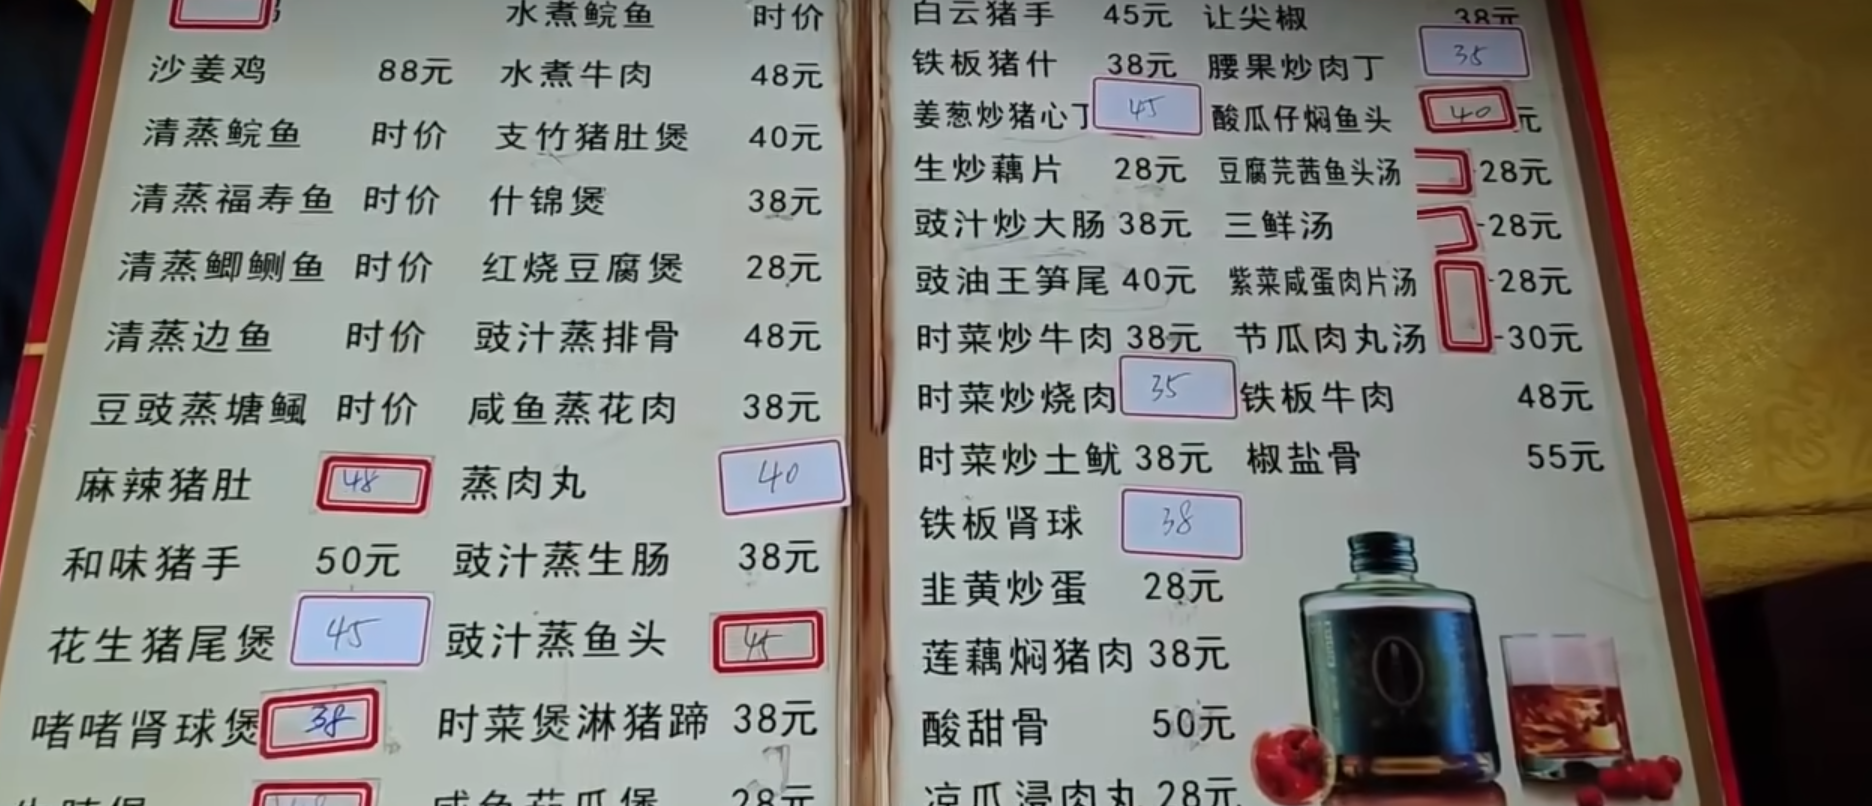 水煮鲩鱼 时价
沙姜鸡 88元 水煮牛肉 48元
清蒸鲩鱼 时价 支竹猪肚煲 40元
清蒸福寿鱼 时价 什锦煲 38元
清蒸鲫鲗鱼 时价 红烧豆腐煲 28元
清蒸边鱼 时价 豉汁蒸排骨 48元
豆豉蒸塘鲺 时价 咸鱼蒸花肉 38元
麻辣猪肚 48 蒸肉丸 40
和味猪手 50元 豉汁蒸生肠 38元
花生猪尾煲 45 豉汁蒸鱼头 45
啫啫肾球煲 38 时菜煲淋猪蹄 38元
咸鱼茄瓜煲 28元
白云猪手 45元 让尖椒 38元
铁板猪什 38元 腰果炒肉丁 35
姜葱炒猪心丁 45 酸瓜仔焖鱼头 40 元
生炒藕片 28元 豆腐芫茜鱼头汤 28元
豉汁炒大肠 38元 三鲜汤 -28元
豉油王笋尾 40元 紫菜咸蛋肉片汤 -28元
时菜炒牛肉 38元 节瓜肉丸汤 -30元
时菜炒烧肉 35 铁板牛肉 48元
时菜炒土鱿 38元 椒盐骨 55元
铁板肾球 38
韭黄炒蛋 28元
莲藕焖猪肉 38元
酸甜骨 50元
凉瓜浸肉丸 28元